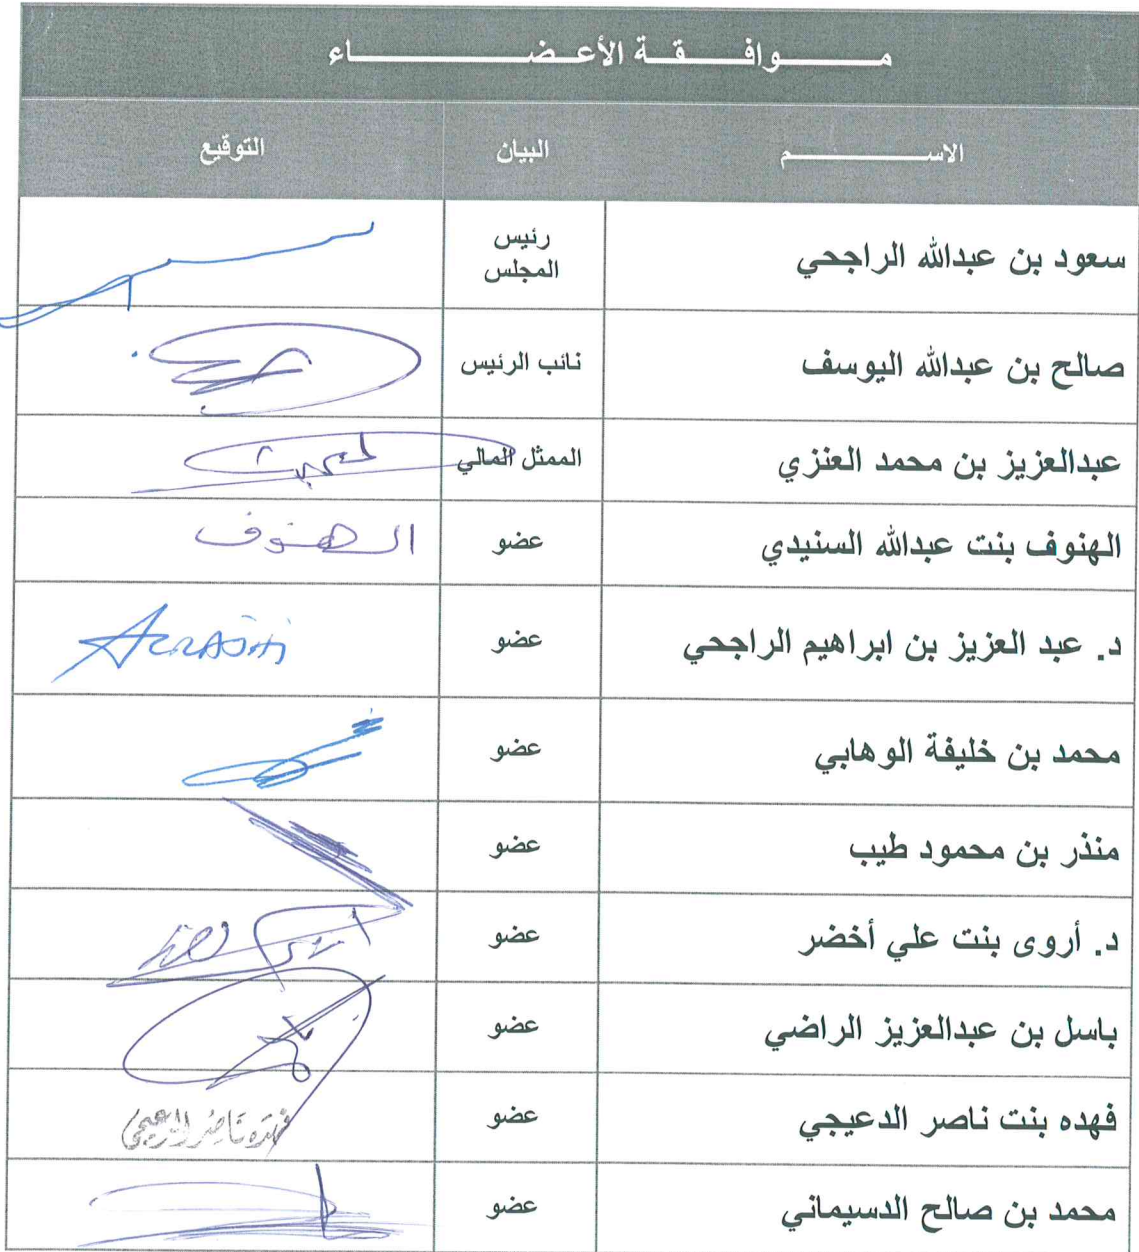 مـــــــوافـــــقـــة الأعـــضـــــــــــــــاء
الاســـــــــــــم البيان التوقيع
سعود بن عبدالله الراجحي رئيس المجلس
صالح بن عبدالله اليوسف نائب الرئيس
عبدالعزيز بن محمد العنزي الممثل المالي
الهنوف بنت عبدالله السنيدي عضو الهنوف
د. عبد العزيز بن ابراهيم الراجحي عضو
محمد بن خليفة الوهابي عضو
منذر بن محمود طيب عضو
د. أروى بنت علي أخضر عضو
باسل بن عبدالعزيز الراضي عضو
فهده بنت ناصر الدعيجي عضو فهدة ناصر الدعيجي
محمد بن صالح الدسيماني عضو